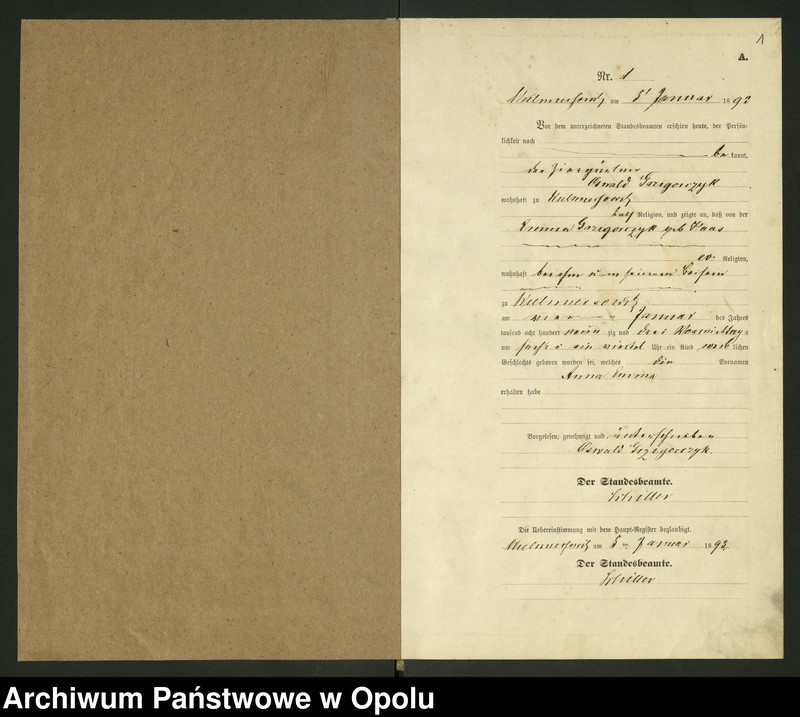 1
A.
Nr. 1
am 5t Januar 1893
Vor dem unterzeichneten Standesbeamten erschien heute, der Persön-
lichkeit nach
be kannt,
der
Oswald Grzegorczyk
wohnhaft zu
kath Religion, und zeigte an, daß von der
Emma Grzegorczyk geb Haas
ev. Religion,
wohnhaft bei ihm in seinem
zu
am vier Januar des Jahres
tausend acht hundert neun zig und drei Vormittags
um sechs ein viertel Uhr ein Kind weiblichen
Geschlechts geboren worden sei, welches die Vornamen
Anna Emma
erhalten habe
Vorgelesen, genehmigt und unterschrieben
Oswald Grzegorczyk.
Der Standesbeamte.
Schiller
Die Uebereinstimmung mit dem Haupt-Register beglaubigt.
am 5 Januar 1893
Der Standesbeamte.
Schiller
Archiwum Państwowe w Opolu